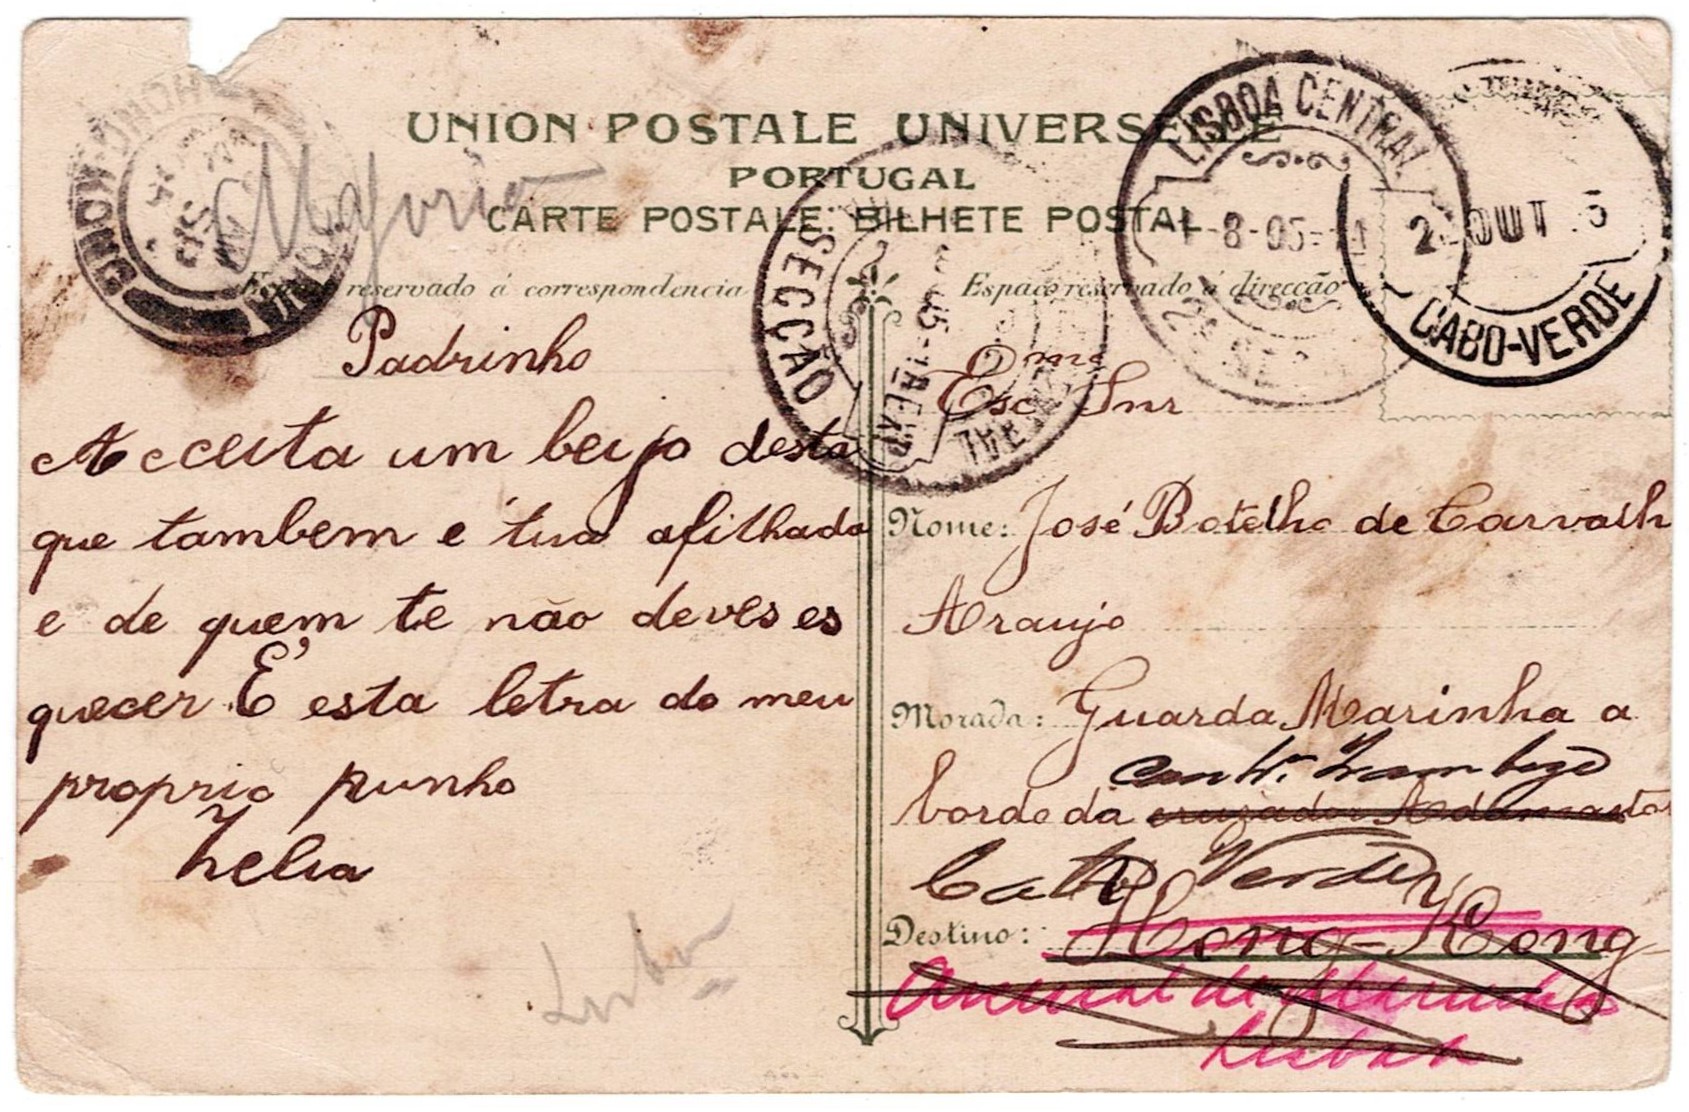 UNION POSTALE UNIVERSELLE
PORTUGAL
CARTE POSTALE: BILHETE POSTAL
reservado á correspondencia
Espaço reservado á direcção
HONG KONG
SECÇÃO
LISBOA CENTRAL
8-05
2ª SE
2 OUT 5
CABO-VERDE
Padrinho
Acceita um beijo desta
que tambem é tua afilhada
e de quem te não deves es
quecer É esta letra do meu
proprio punho
Zelia
Lisboa
Excmo Snr
Nome: José Botelho de Carvalh
Araujo
Morada: Guarda Marinha a
canhª. Zambeze
bordo da cruzador Adamastor
Cabo Verde
Destino: Hong-Kong
Arsenal de Marinha
Lisboa